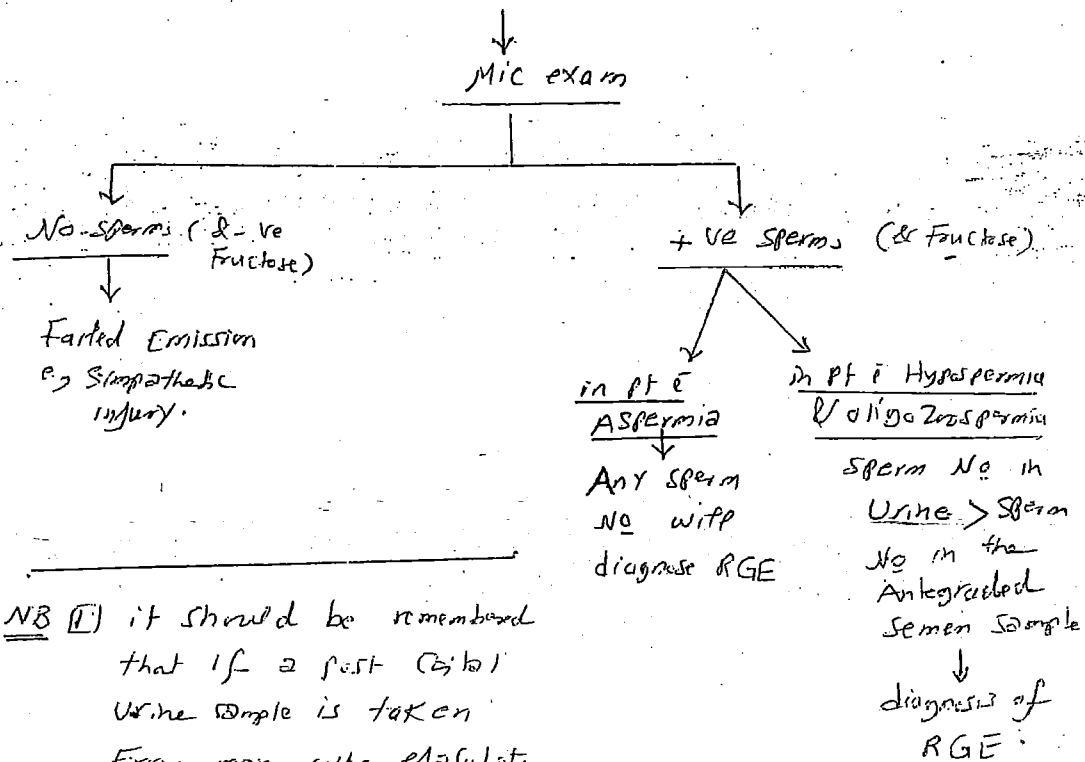 Mic exam
No-sperms (& -ve
Fructose)
Failed Emission
e.g Simpathetic
injury.
+ ve sperms (& Fructose)
in pt c̄
ASPermia
Any sperm
No will
diagnose RGE
in pt c̄ Hypospermia
& oligoZoospermia
sperm No in
Urine > Sperm
No in the
Antegraded
semen sample
diagnosis of
RGE.
NB 1) it should be remembered
that if a post Coital
Urine sample is taken
From man who